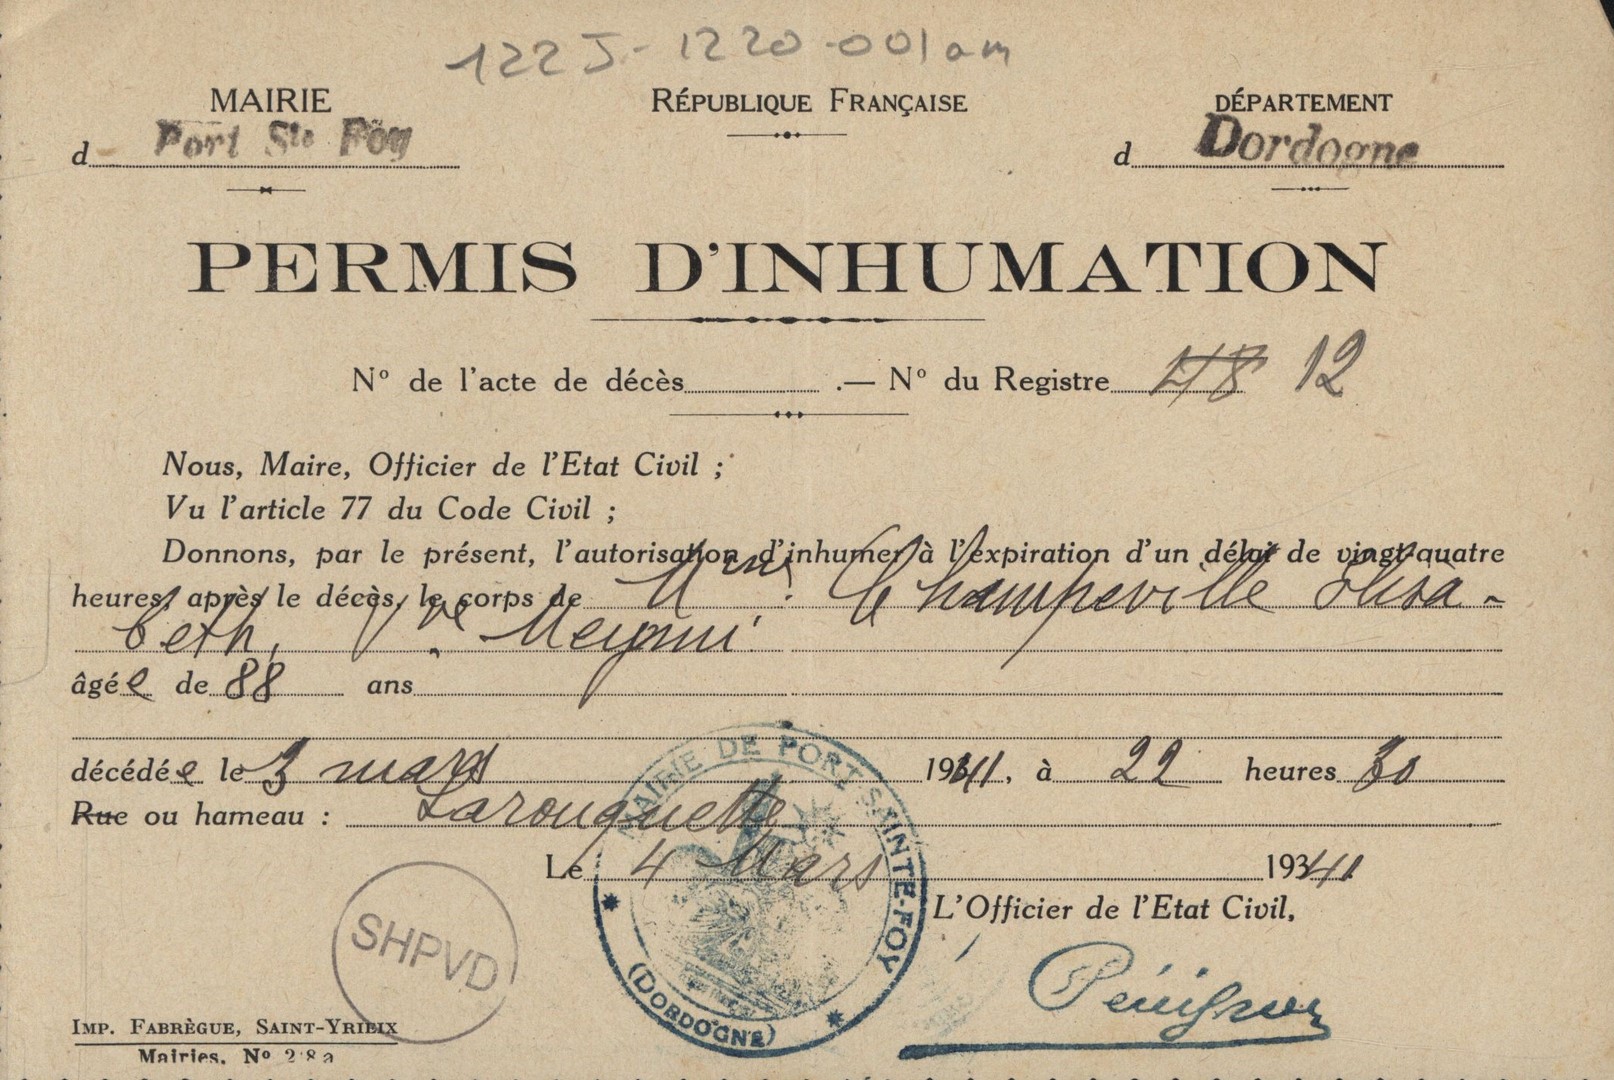 122 J - 1220 - 001 am
MAIRIE
d Port Ste Foy
RÉPUBLIQUE FRANÇAISE
DÉPARTEMENT
d Dordogne
PERMIS D'INHUMATION
N° de l'acte de décès .— N° du Registre 48 12
Nous, Maire, Officier de l'Etat Civil ;
Vu l'article 77 du Code Civil ;
Donnons, par le présent, l'autorisation d'inhumer à l'expiration d'un délai de vingt-quatre
heures, après le décès, le corps de Mme Champeville Elisa-
beth, Vve
âgée de 88 ans
décédée le 3 mars 1941, à 22 heures 30
Rue ou hameau : Larouquette
Le 4 Mars 1941
L'Officier de l'Etat Civil,
MAIRIE DE PORT SAINTE-FOY
(DORDOGNE)
SHPVD
IMP. FABRÈGUE, SAINT-YRIEIX
Mairies. N° 28a